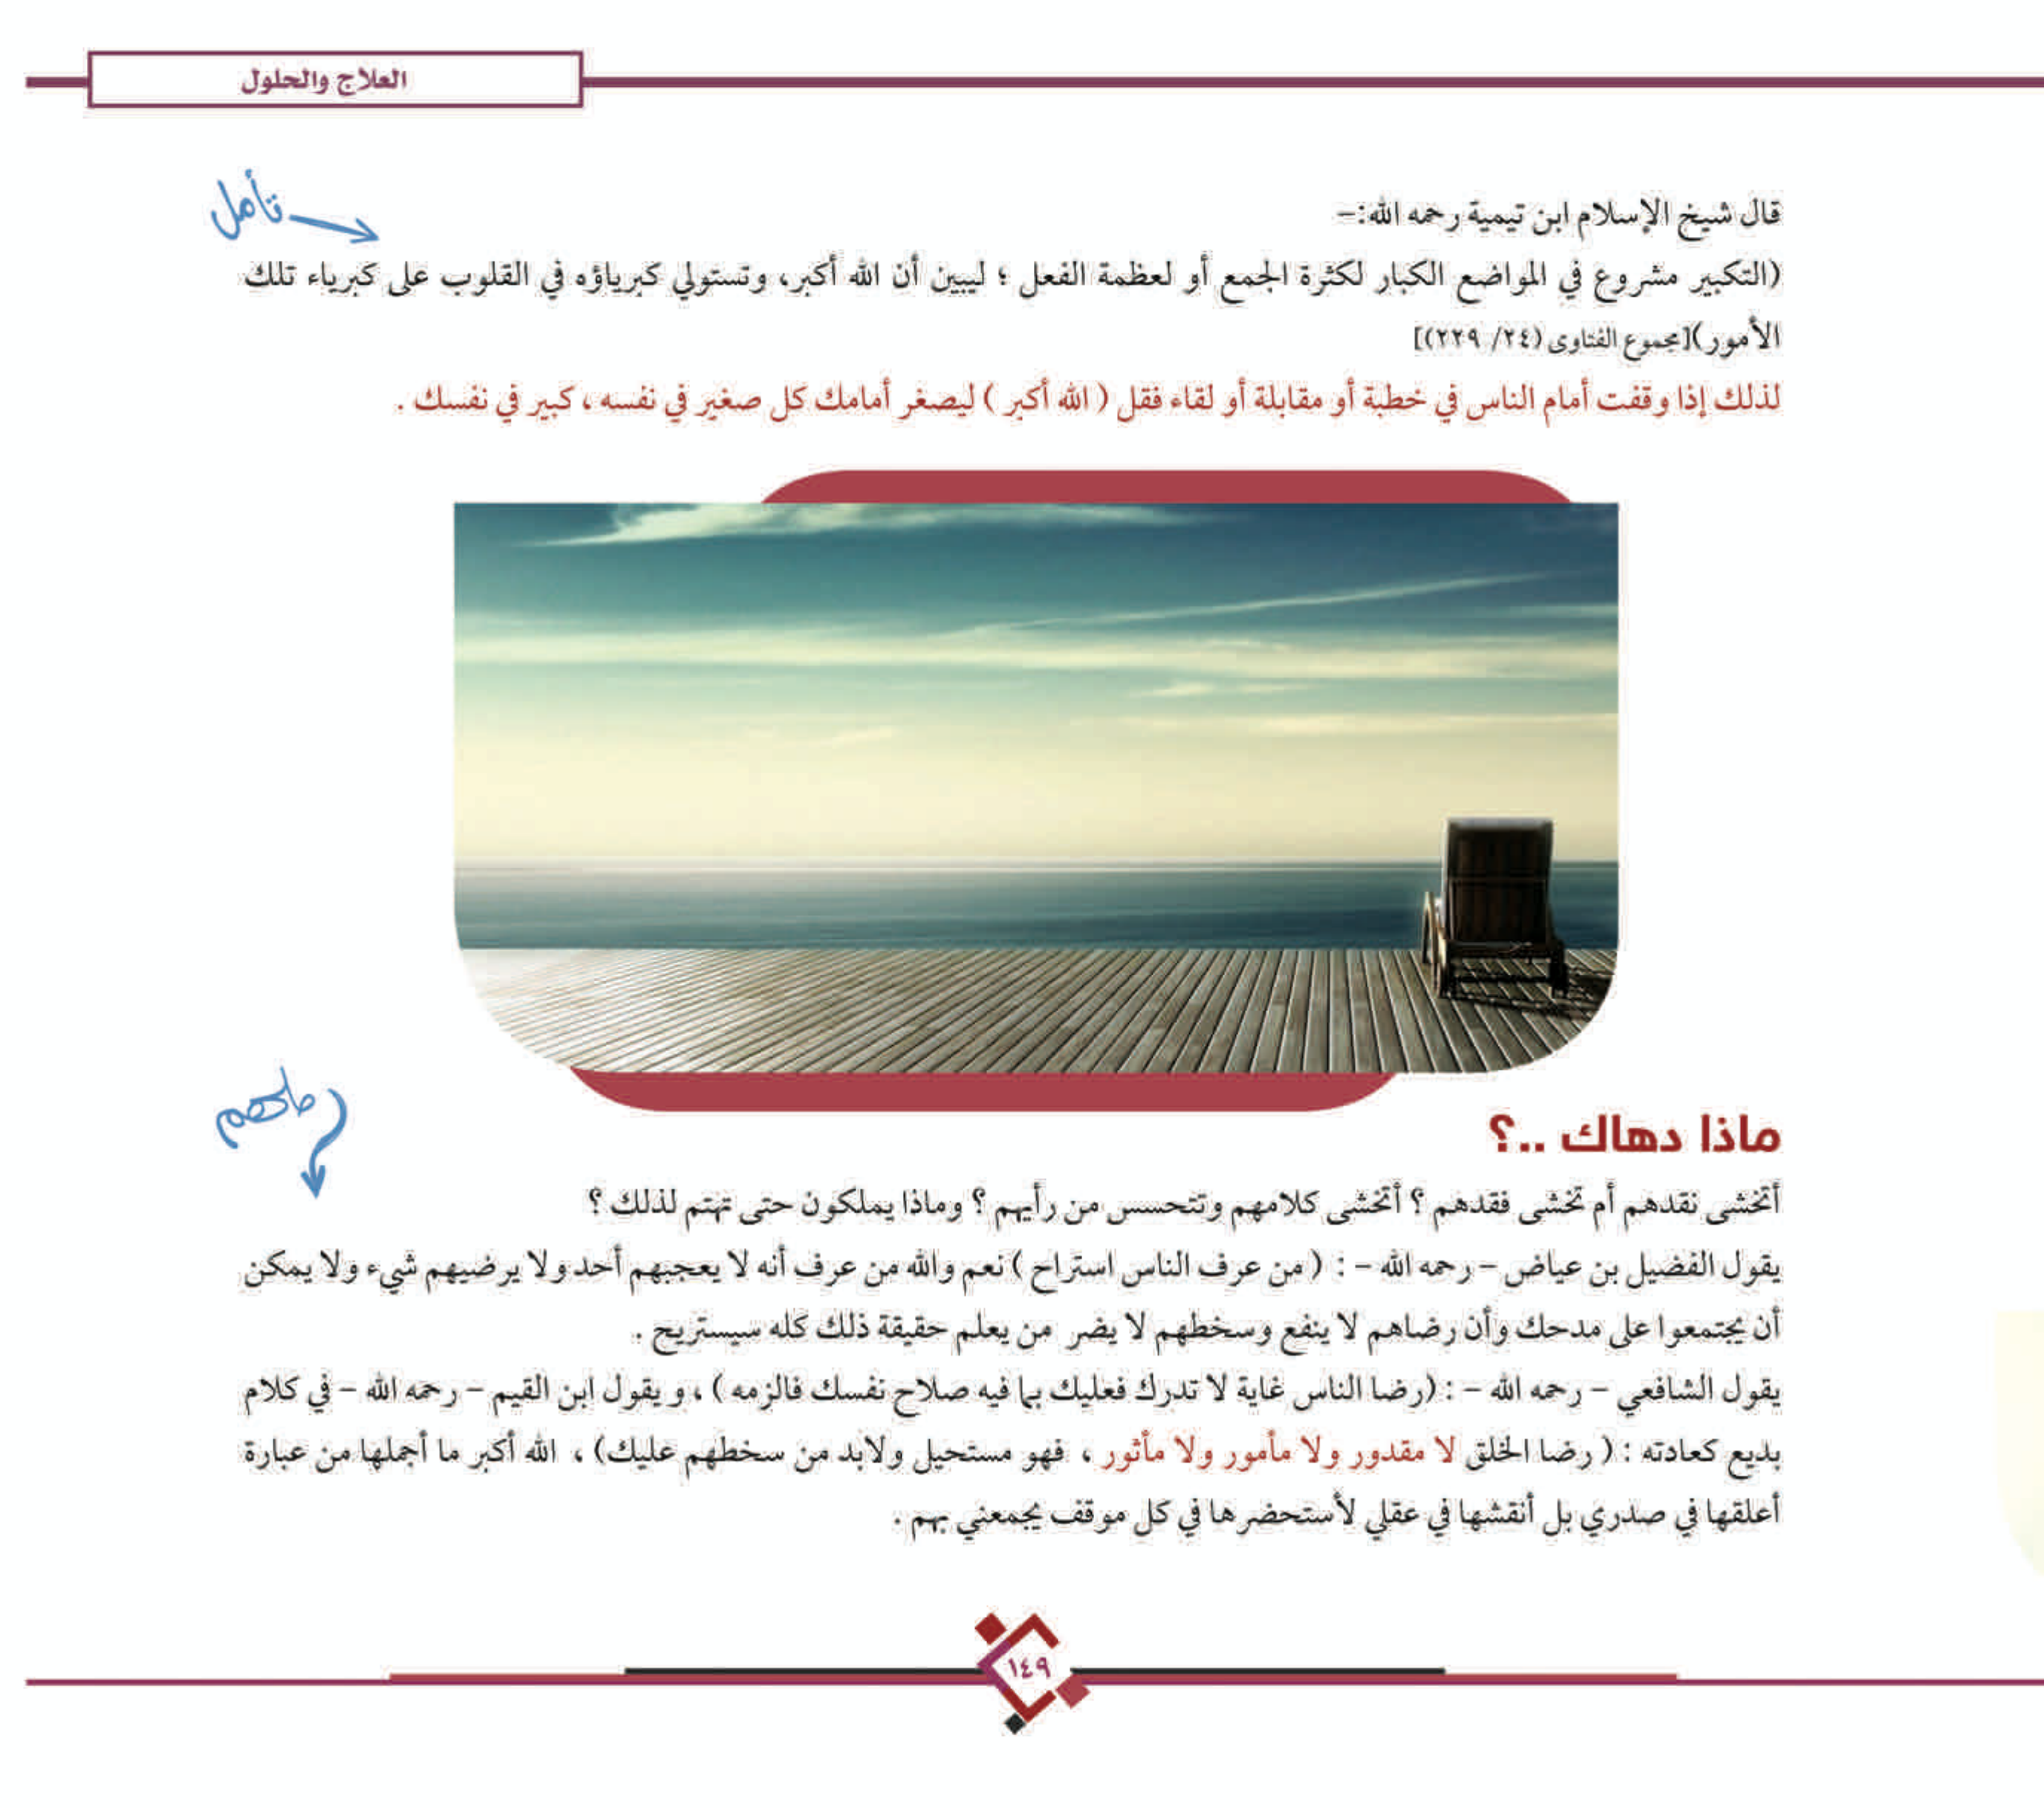 العلاج والحلول
تأمل
قال شيخ الإسلام ابن تيمية رحمه الله:-
(التكبير مشروع في المواضع الكبار لكثرة الجمع أو لعظمة الفعل ؛ ليبين أن الله أكبر، وتستولي كبرياؤه في القلوب على كبرياء تلك
الأمور)[مجموع الفتاوى (٢٤/ ٢٢٩)]
لذلك إذا وقفت أمام الناس في خطبة أو مقابلة أو لقاء فقل ( الله أكبر ) ليصغر أمامك كل صغير في نفسه ، كبير في نفسك .
ماذا دهاك ..؟
أتخشى نقدهم أم تخشى فقدهم ؟ أتخشى كلامهم وتتحسس من رأيهم ؟ وماذا يملكون حتى تهتم لذلك ؟
يقول الفضيل بن عياض – رحمه الله – : ( من عرف الناس استراح ) نعم والله من عرف أنه لا يعجبهم أحد ولا يرضيهم شيء ولا يمكن
أن يجتمعوا على مدحك وأن رضاهم لا ينفع وسخطهم لا يضر من يعلم حقيقة ذلك كله سيستريح .
يقول الشافعي – رحمه الله – : (رضا الناس غاية لا تدرك فعليك بما فيه صلاح نفسك فالزمه ) ، و يقول ابن القيم – رحمه الله – في كلام
بديع كعادته : ( رضا الخلق لا مقدور ولا مأمور ولا مأثور ، فهو مستحيل ولابد من سخطهم عليك) ، الله أكبر ما أجملها من عبارة
أعلقها في صدري بل أنقشها في عقلي لأستحضرها في كل موقف يجمعني بهم .
١٤٩